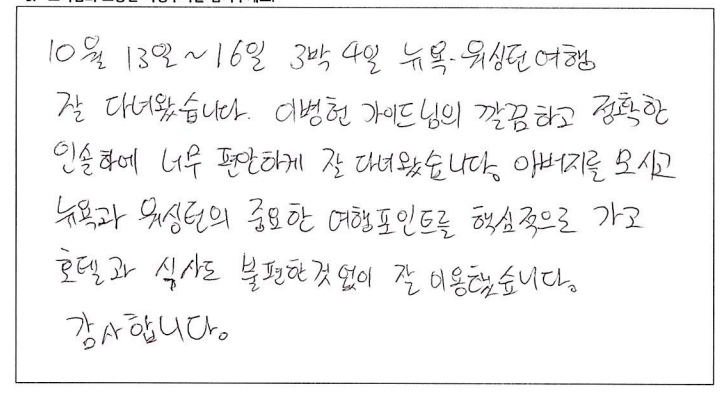 10월 13일~16일 3박 4일 뉴욕·워싱턴여행
잘 다녀왔습니다. 이병헌 가이드님의 깔끔하고 정확한
인솔하에 너무 편안하게 잘 다녀왔습니다. 아버지를 모시고
뉴욕과 워싱턴의 중요한 여행포인트를 핵심적으로 가고
호텔과 식사도 불편한것없이 잘 이용했습니다.
감사합니다.